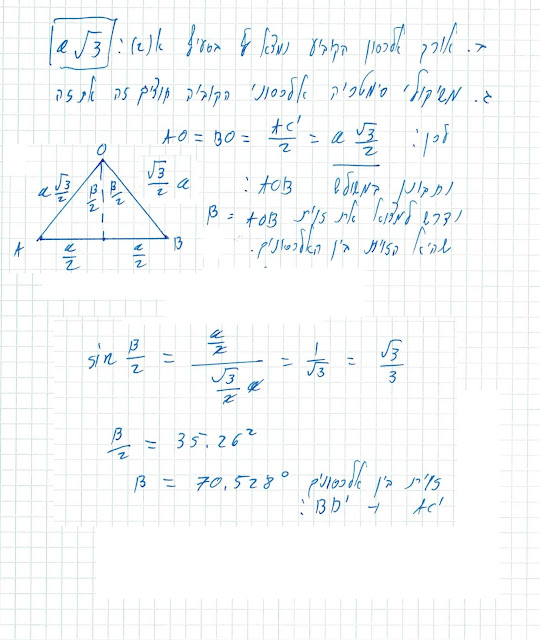 ב. אורך אלכסון הקוביה נמצא על בסעיף א(2): a√3
ג. משיקולי סימטריה אלכסוני הקוביה חוצים זה את זה
לכן: AO = BO = AC'/2 = a √3/2
נתבונן במשולש AOB:
נדרש למצוא את זוית AOB = β
שהיא הזוית בין האלכסונים.
O
a √3/2 β/2 β/2 √3/2 a
A a/2 a/2 B
sin β/2 = (a/2)/(√3/2 a) = 1/√3 = √3/3
β/2 = 35.26²
β = 70.528° זוית בין אלכסונים
AC' ו BD':